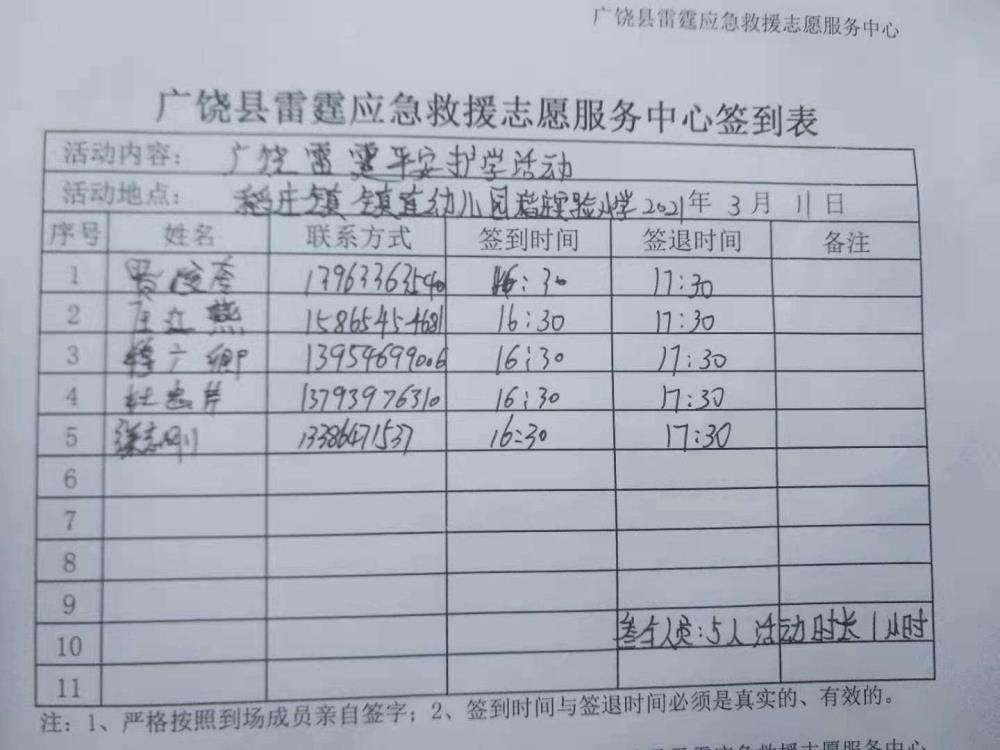 广饶县雷霆应急救援志愿服务中心
广饶县雷霆应急救援志愿服务中心签到表
活动内容： 广饶雷霆平安护学活动
活动地点： 稻庄镇镇直幼儿园稻庄实验小学2021年 3 月 11 日
序号 姓名 联系方式 签到时间 签退时间 备注
1 13963363540 16:30 17:30
2 王立燕 15865454681 16:30 17:30
3 广卿 13954699006 16:30 17:30
4 杜 13793976310 16:30 17:30
5 张志刚 13386471537 16:30 17:30
6
7
8
9
10 参与人员:5人 活动时长1小时
11
注：1、严格按照到场成员亲自签字；2、签到时间与签退时间必须是真实的、有效的。
雷霆应急救援志愿服务中心